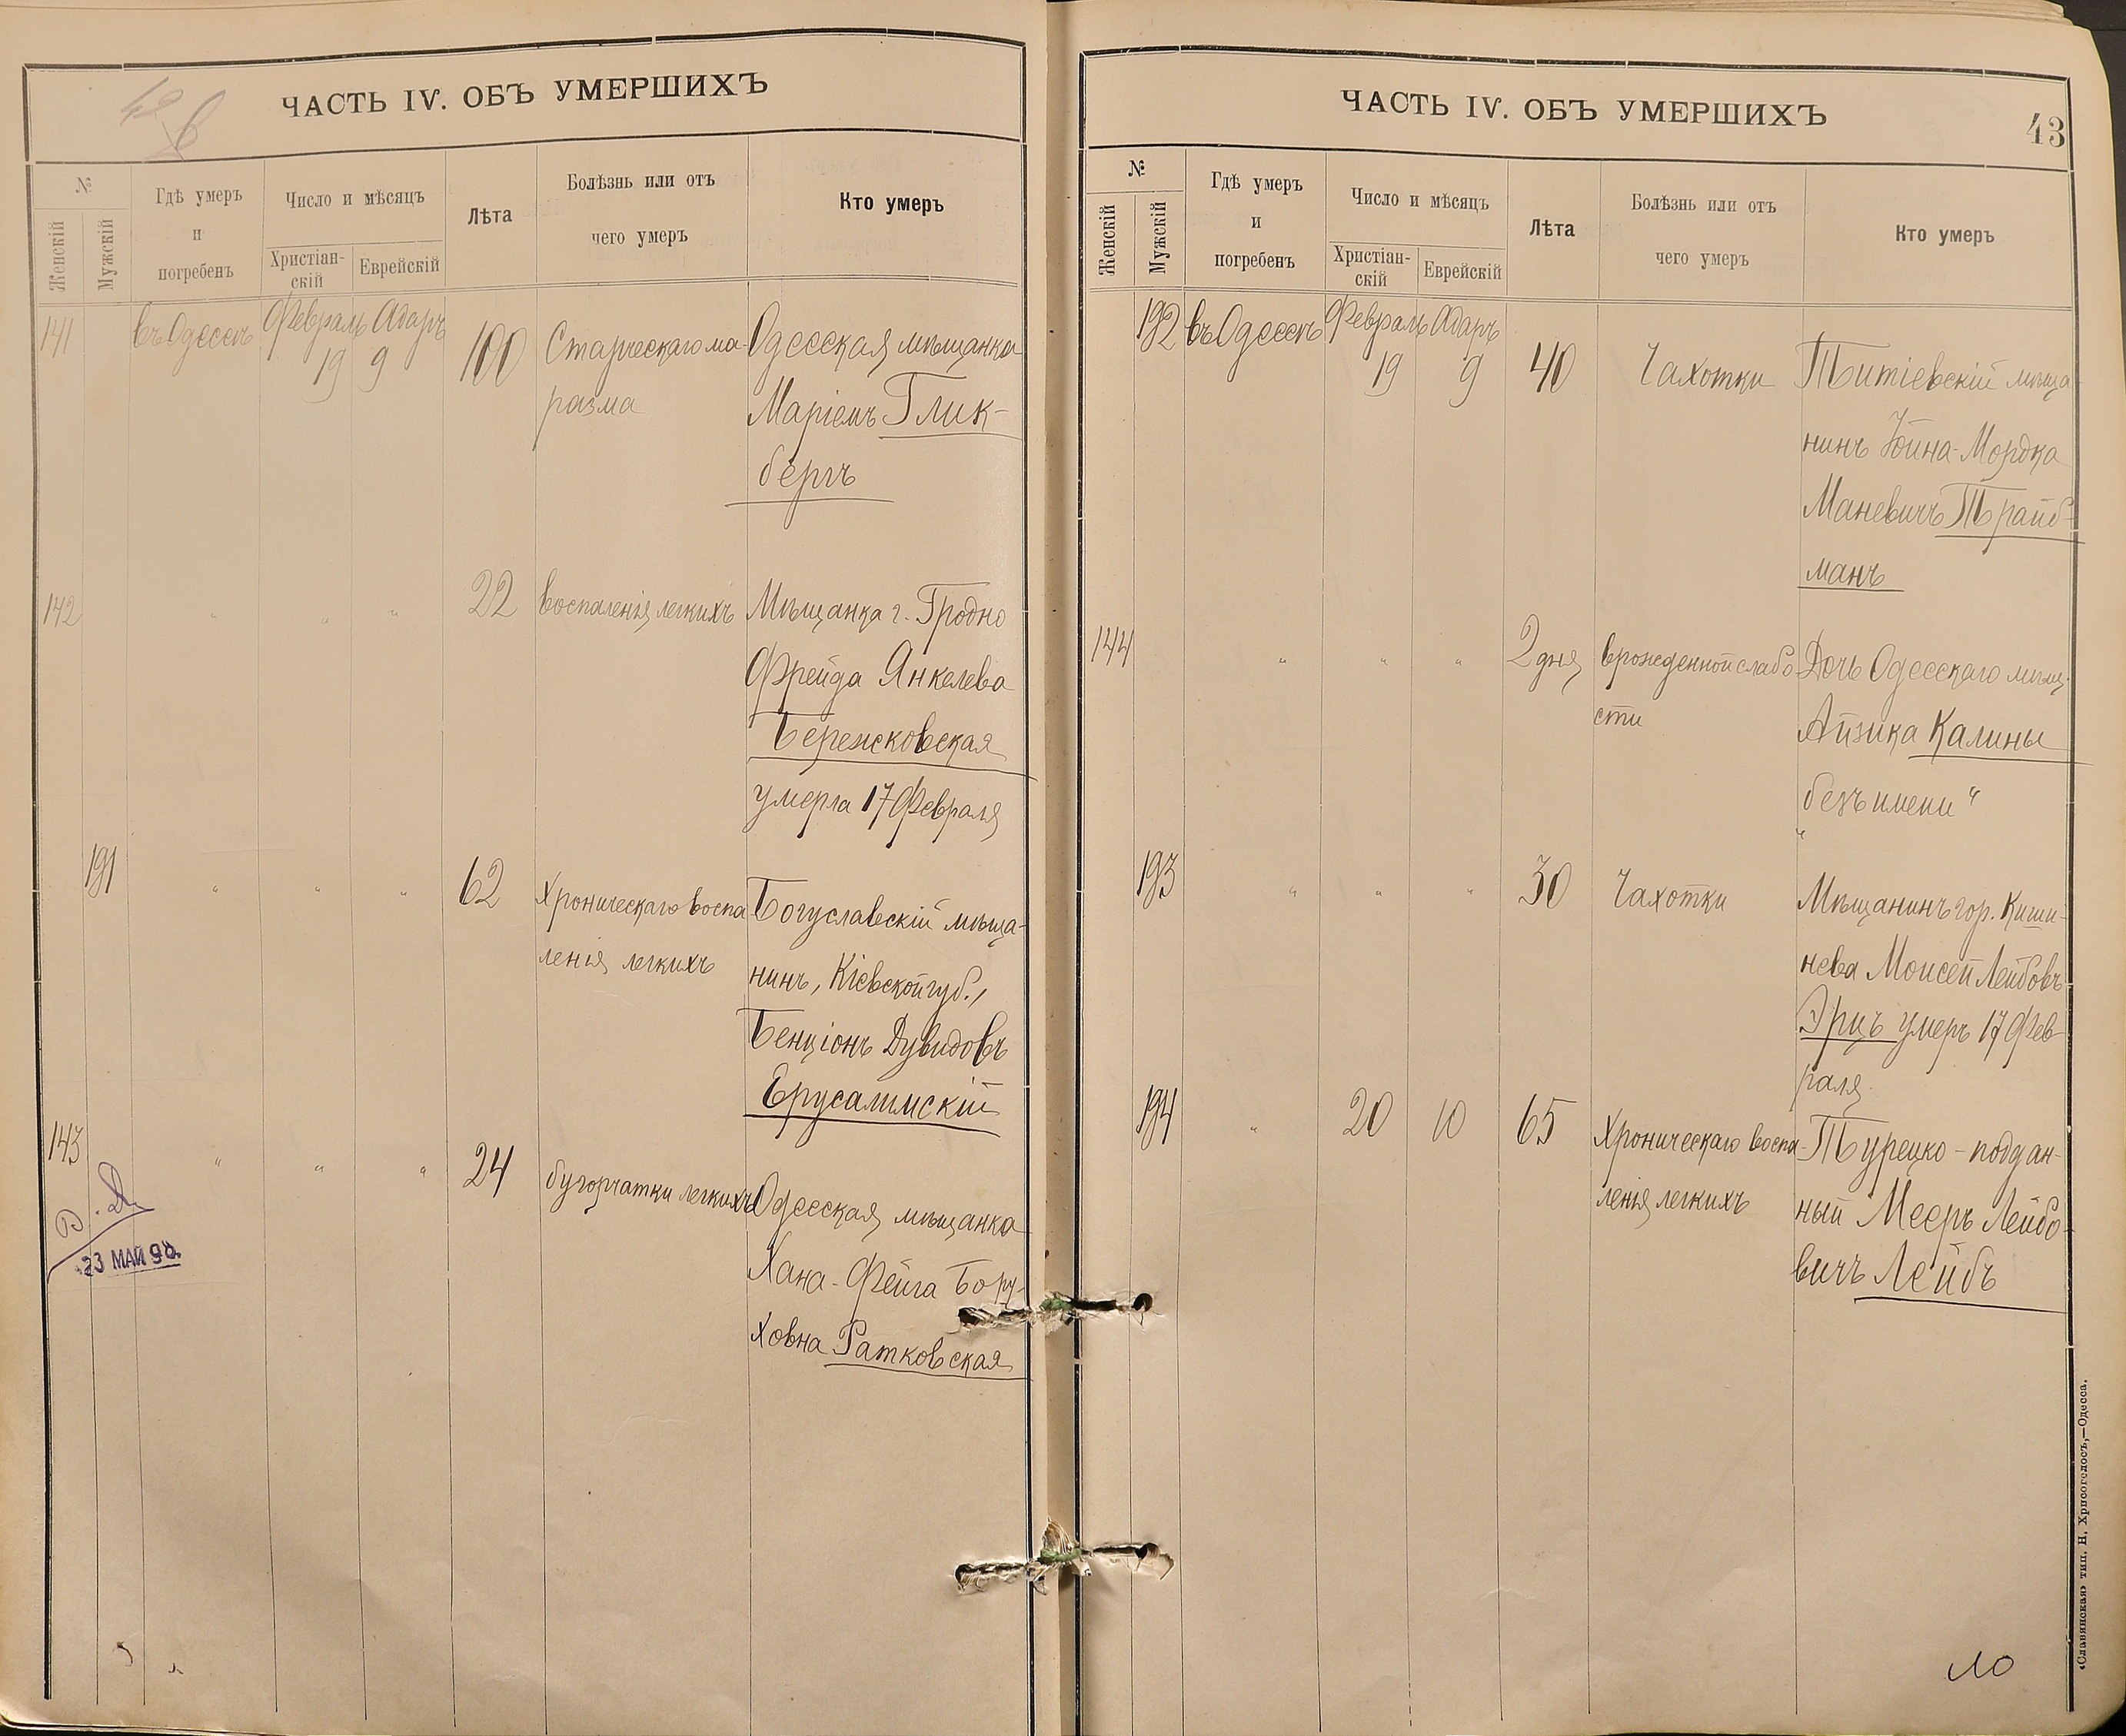 ЧАСТЬ IV. ОБЪ УМЕРШИХЪ
№
Женскій
Мужскій
Гдѣ умеръ
и
погребенъ
Число и мѣсяцъ
Христіан-
скій
Еврейскій
Лѣта
Болѣзнь или отъ
чего умеръ
Кто умеръ
141 въ Одессѣ Февраль Адаръ
19 9 100 Старческаго ма- Одесская мѣщанка
разма Маріемъ Глик-
бергъ
142 " " " 22 воспаленія легкихъ Мѣщанка г. Гродно
Фрейда Янкелева
Бережковская
умерла 17 Февраля
191 " " " 62 Хроническаго воспа Богуславскій мѣща-
ленія легкихъ нинъ, Кіевской губ.,
Бенціонъ Дувидовъ
Ерусалимскій
143 " " " 24 бугорчатки легкихъ Одесская мѣщанка
Хана-Фейга Бору-
ховна Ратковская
23 МАЙ 98
ЧАСТЬ IV. ОБЪ УМЕРШИХЪ
43
№
Женскій
Мужскій
Гдѣ умеръ
и
погребенъ
Число и мѣсяцъ
Христіан-
скій
Еврейскій
Лѣта
Болѣзнь или отъ
чего умеръ
Кто умеръ
192 въ Одессѣ Февраль Адаръ
19 9 40 Чахотки Титіевскій мѣща-
нинъ Іойна-Мордка
Маневичъ Трайб-
манъ
144 " " " 2 дня врожденной слабо Дочь Одесскаго мѣщ.
сти Айзика Калины
безъ имени "
"
193 " " " 30 Чахотки Мѣщанинъ гор. Киши-
нева Моисей Лейбовъ
Эрцъ умеръ 17 Фев
раля.
194 " 20 10 65 Хроническаго воспа- Турецко-поддан-
ленія легкихъ ный Мееръ Лейбо-
вичъ Лейбъ
«Славянская» тип. Н. Хрисогелосъ,—Одесса.